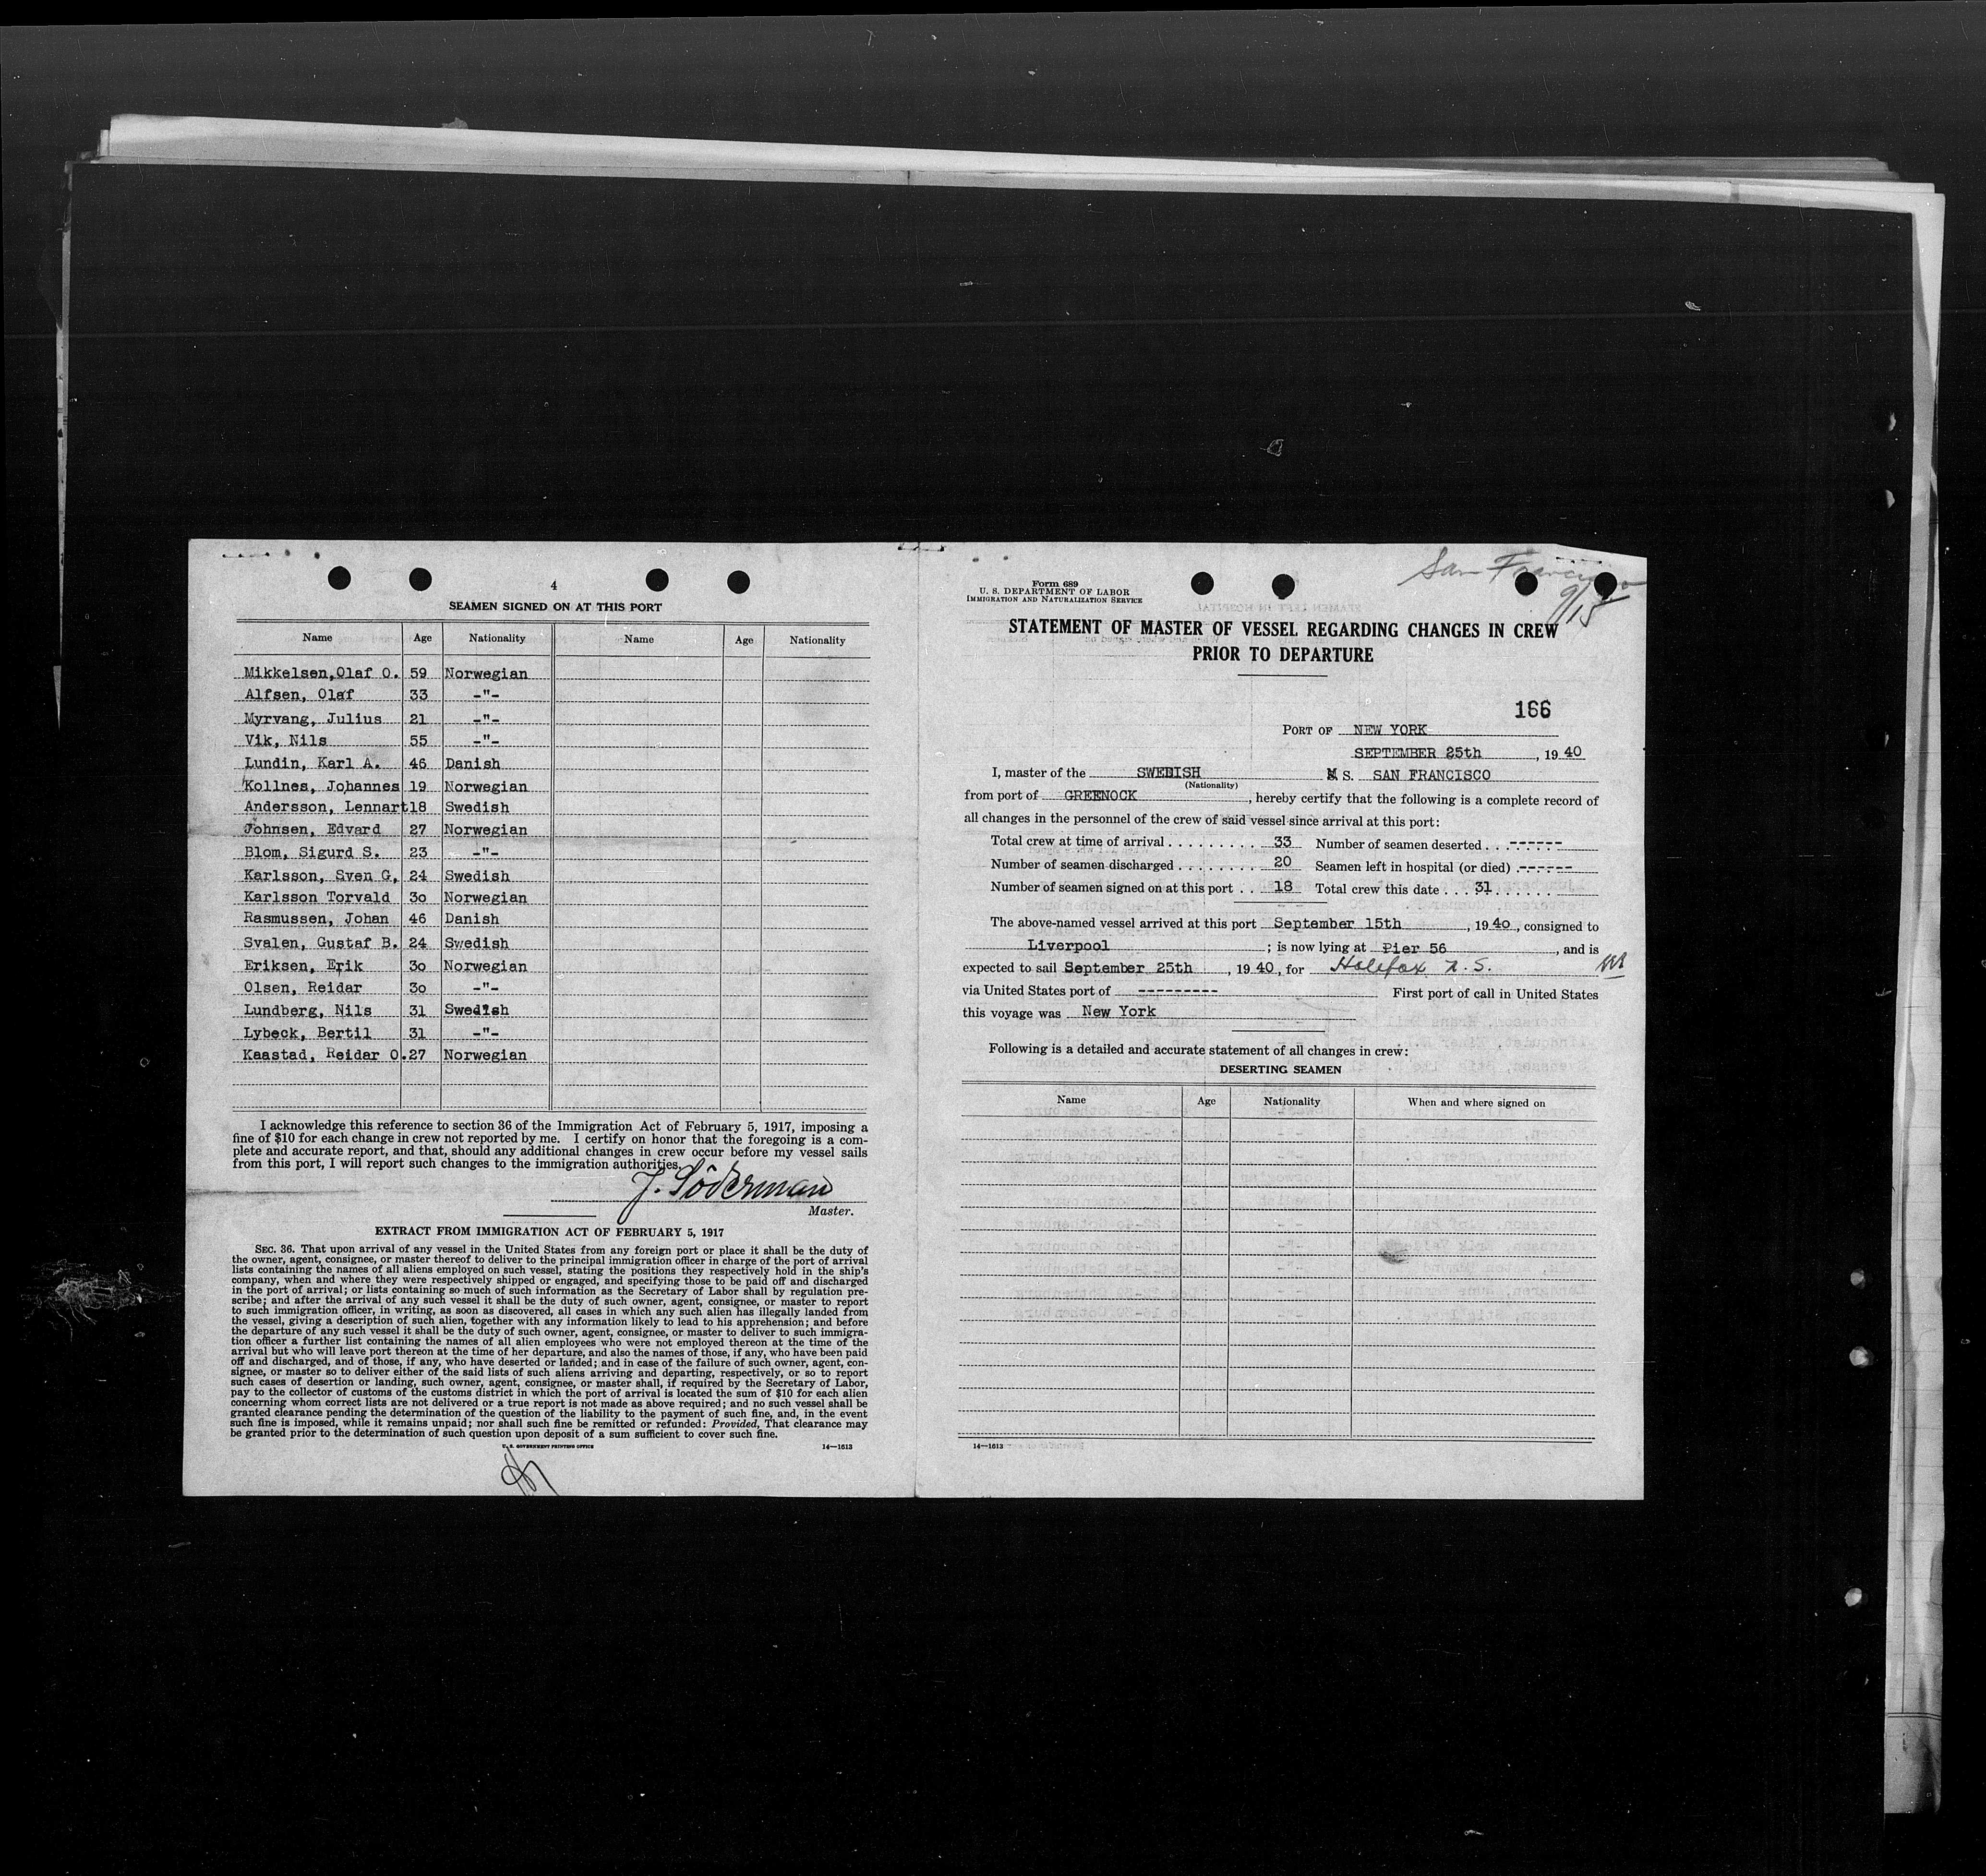 4
SEAMEN SIGNED ON AT THIS PORT
Name Age Nationality Name Age Nationality
Mikkelsen, Olaf O. 59 Norwegian
Alfsen, Olaf 33 -"-
Myrvang, Julius 21 -"-
Vik, Nils 55 -"-
Lundin, Karl A. 46 Danish
Kollnes, Johannes 19 Norwegian
Andersson, Lennart 18 Swedish
Johnsen, Edvard 27 Norwegian
Blom, Sigurd S. 23 -"-
Karlsson, Sven G, 24 Swedish
Karlsson Torvald 3o Norwegian
Rasmussen, Johan 46 Danish
Svalen, Gustaf B. 24 Swedish
Eriksen, Erik 3o Norwegian
Olsen, Reidar 3o -"-
Lundberg, Nils 31 Swedish
Lybeck, Bertil 31 -"-
Kaastad, Reidar O. 27 Norwegian
I acknowledge this reference to section 36 of the Immigration Act of February 5, 1917, imposing a
fine of $10 for each change in crew not reported by me. I certify on honor that the foregoing is a com-
plete and accurate report, and that, should any additional changes in crew occur before my vessel sails
from this port, I will report such changes to the immigration authorities.
J. Söderman
Master.
EXTRACT FROM IMMIGRATION ACT OF FEBRUARY 5, 1917
SEC. 36. That upon arrival of any vessel in the United States from any foreign port or place it shall be the duty of
the owner, agent, consignee, or master thereof to deliver to the principal immigration officer in charge of the port of arrival
lists containing the names of all aliens employed on such vessel, stating the positions they respectively hold in the ship's
company, when and where they were respectively shipped or engaged, and specifying those to be paid off and discharged
in the port of arrival; or lists containing so much of such information as the Secretary of Labor shall by regulation pre-
scribe; and after the arrival of any such vessel it shall be the duty of such owner, agent, consignee, or master to report
to such immigration officer, in writing, as soon as discovered, all cases in which any such alien has illegally landed from
the vessel, giving a description of such alien, together with any information likely to lead to his apprehension; and before
the departure of any such vessel it shall be the duty of such owner, agent, consignee, or master to deliver to such immigra-
tion officer a further list containing the names of all alien employees who were not employed thereon at the time of the
arrival but who will leave port thereon at the time of her departure, and also the names of those, if any, who have been paid
off and discharged, and of those, if any, who have deserted or landed; and in case of the failure of such owner, agent, con-
signee, or master so to deliver either of the said lists of such aliens arriving and departing, respectively, or so to report
such cases of desertion or landing, such owner, agent, consignee, or master shall, if required by the Secretary of Labor,
pay to the collector of customs of the customs district in which the port of arrival is located the sum of $10 for each alien
concerning whom correct lists are not delivered or a true report is not made as above required; and no such vessel shall be
granted clearance pending the determination of the question of the liability to the payment of such fine, and, in the event
such fine is imposed, while it remains unpaid; nor shall such fine be remitted or refunded: Provided, That clearance may
be granted prior to the determination of such question upon deposit of a sum sufficient to cover such fine.
U. S. GOVERNMENT PRINTING OFFICE 14—1613
San Francisco
9/15
Form 689
U. S. DEPARTMENT OF LABOR
IMMIGRATION AND NATURALIZATION SERVICE
STATEMENT OF MASTER OF VESSEL REGARDING CHANGES IN CREW
PRIOR TO DEPARTURE
166
PORT OF NEW YORK
SEPTEMBER 25th, 1940
I, master of the SWEDISH M S. SAN FRANCISCO
(Nationality)
from port of GREENOCK, hereby certify that the following is a complete record of
all changes in the personnel of the crew of said vessel since arrival at this port:
Total crew at time of arrival . . . . . . . . . 33 Number of seamen deserted . . . ------
Number of seamen discharged . . . . . . . . 20 Seamen left in hospital (or died) ------
Number of seamen signed on at this port . . 18 Total crew this date . . . 31
The above-named vessel arrived at this port September 15th, 194o, consigned to
Liverpool; is now lying at Pier 56, and is
expected to sail September 25th, 1940, for Halifax N. S.
via United States port of --------- First port of call in United States
this voyage was New York
Following is a detailed and accurate statement of all changes in crew:
DESERTING SEAMEN
Name Age Nationality When and where signed on
14—1613